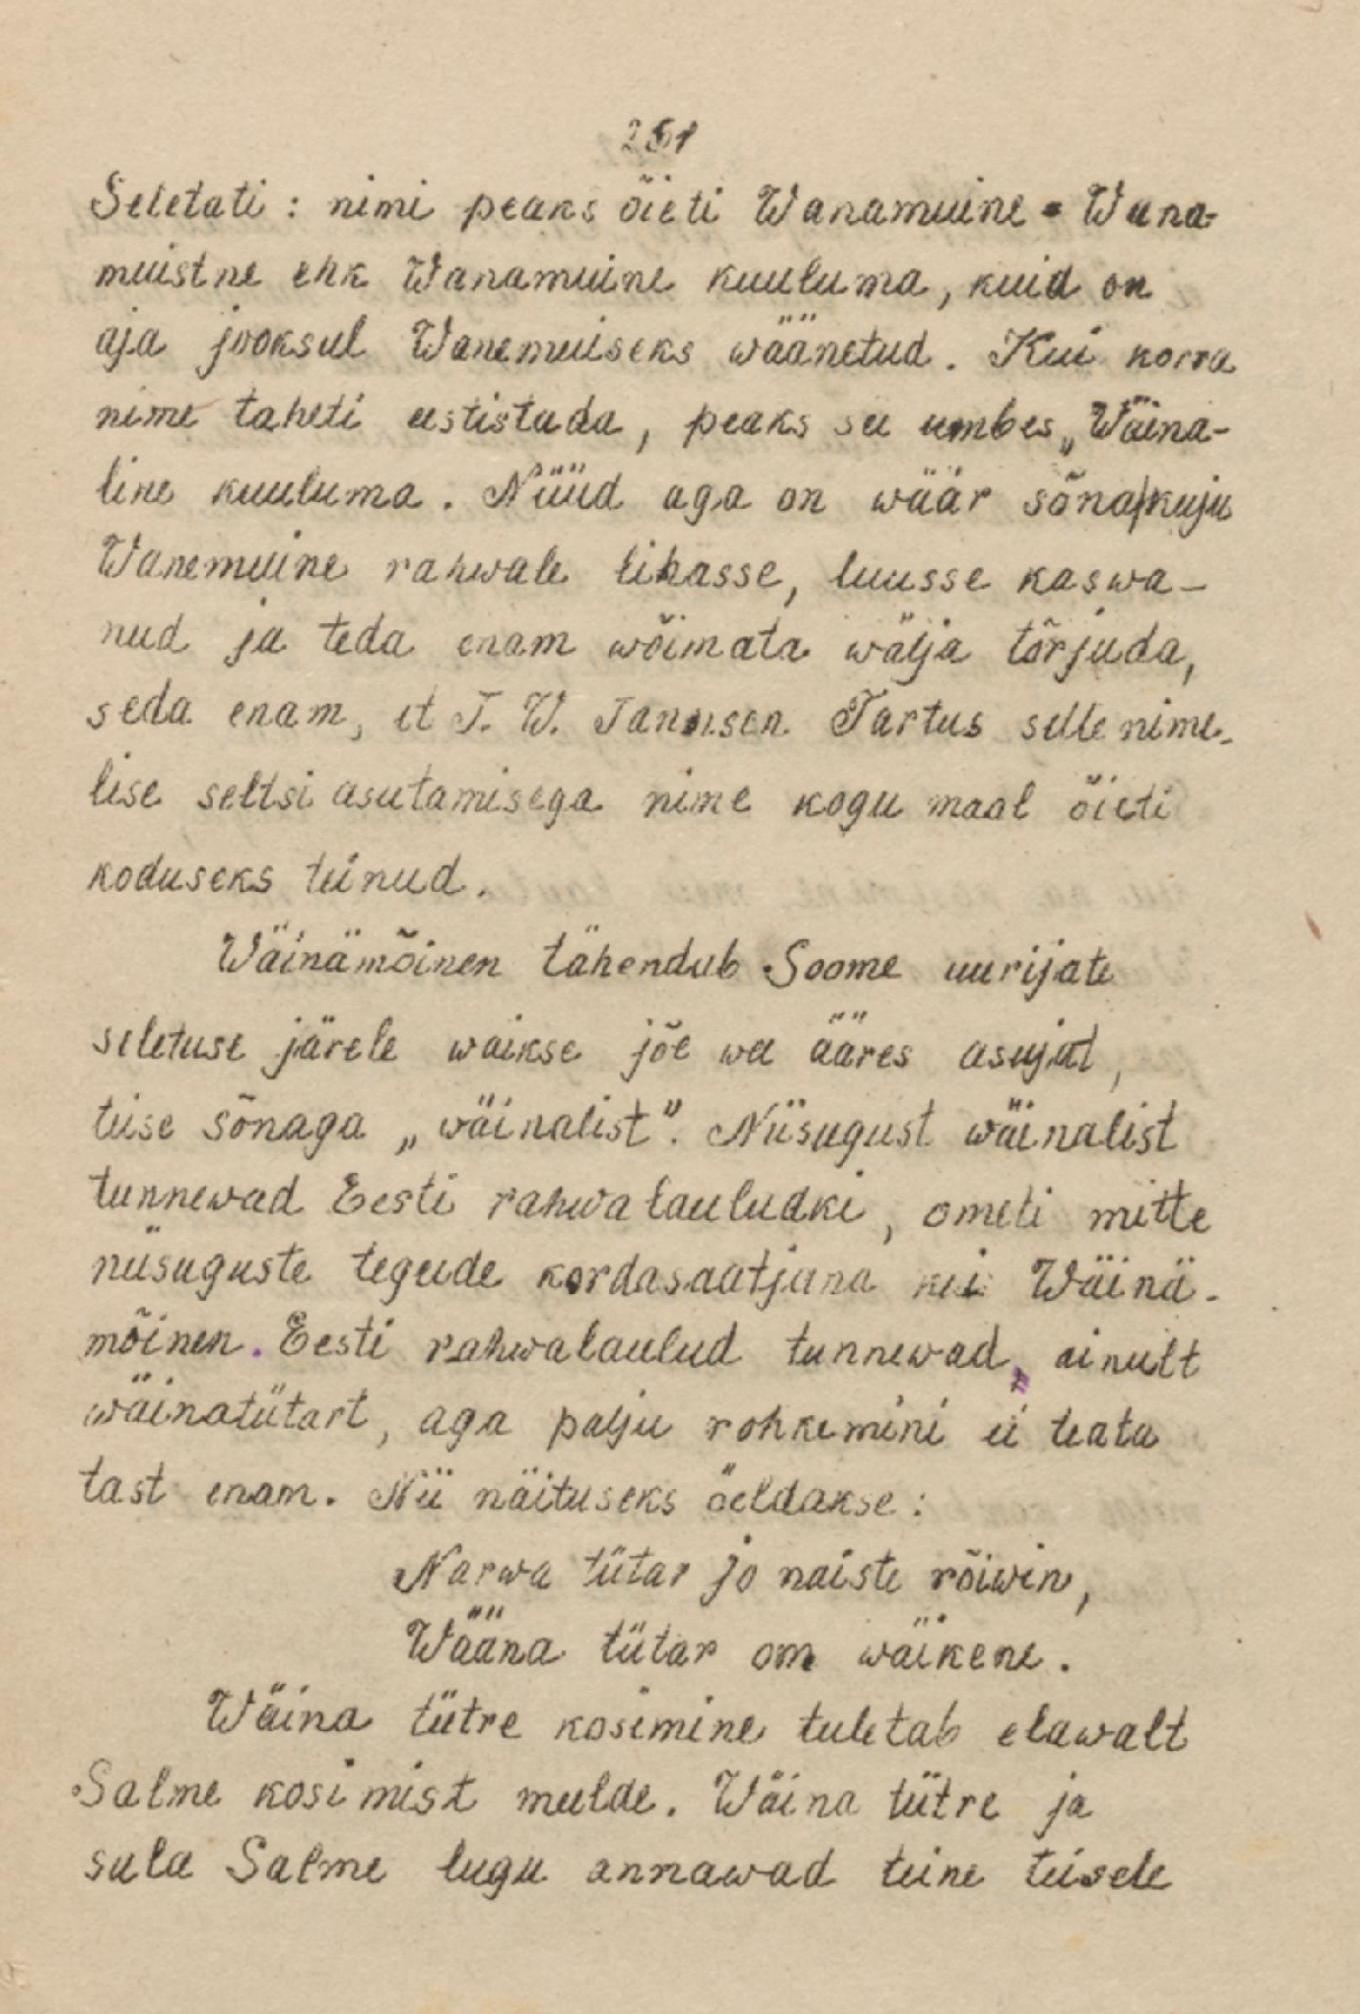 251
Seletati : nimi peaks õieti Wanamuine = Wana-
muistne ehk Wanamuine kuuluma, kuid on
aja jooksul Wanemuiseks wäänetud. Kui korra
nime taheti eestistada, peaks see umbes „Wäina-
line kuuluma. Nüüd aga on wäär sõna|kuju
Wanemuine rahwale lihasse, luusse kaswa-
nud ja teda enam wõimata wälja tõrjuda,
seda enam, et J. W. Jannsen Tartus selle nime-
lise seltsi asutamisega nime kogu maal õieti
koduseks teinud.
Wäinämõinen tähendub Soome uurijate
seletuse järele waikse jõe wee ääres asujat,
teise sõnaga „wäinalist". Niisugust wäinalist
tunnewad Eesti rahwalauludki, ometi mitte
niisuguste tegude kordasaatjana kui Wäinä-
mõinen. Eesti rahwalaulud tunnewad ainult
wäinatütart, aga palju rohkemini ei teata
tast enam. Nii näituseks öeldakse :
Narwa tütar jo naiste rõiwin,
Wääna tütar om wäikene.
Wäina tütre kosimine tuletab elawalt
Salme kosimist meelde. Wäina tütre ja
sula Salme lugu annawad teine teisele